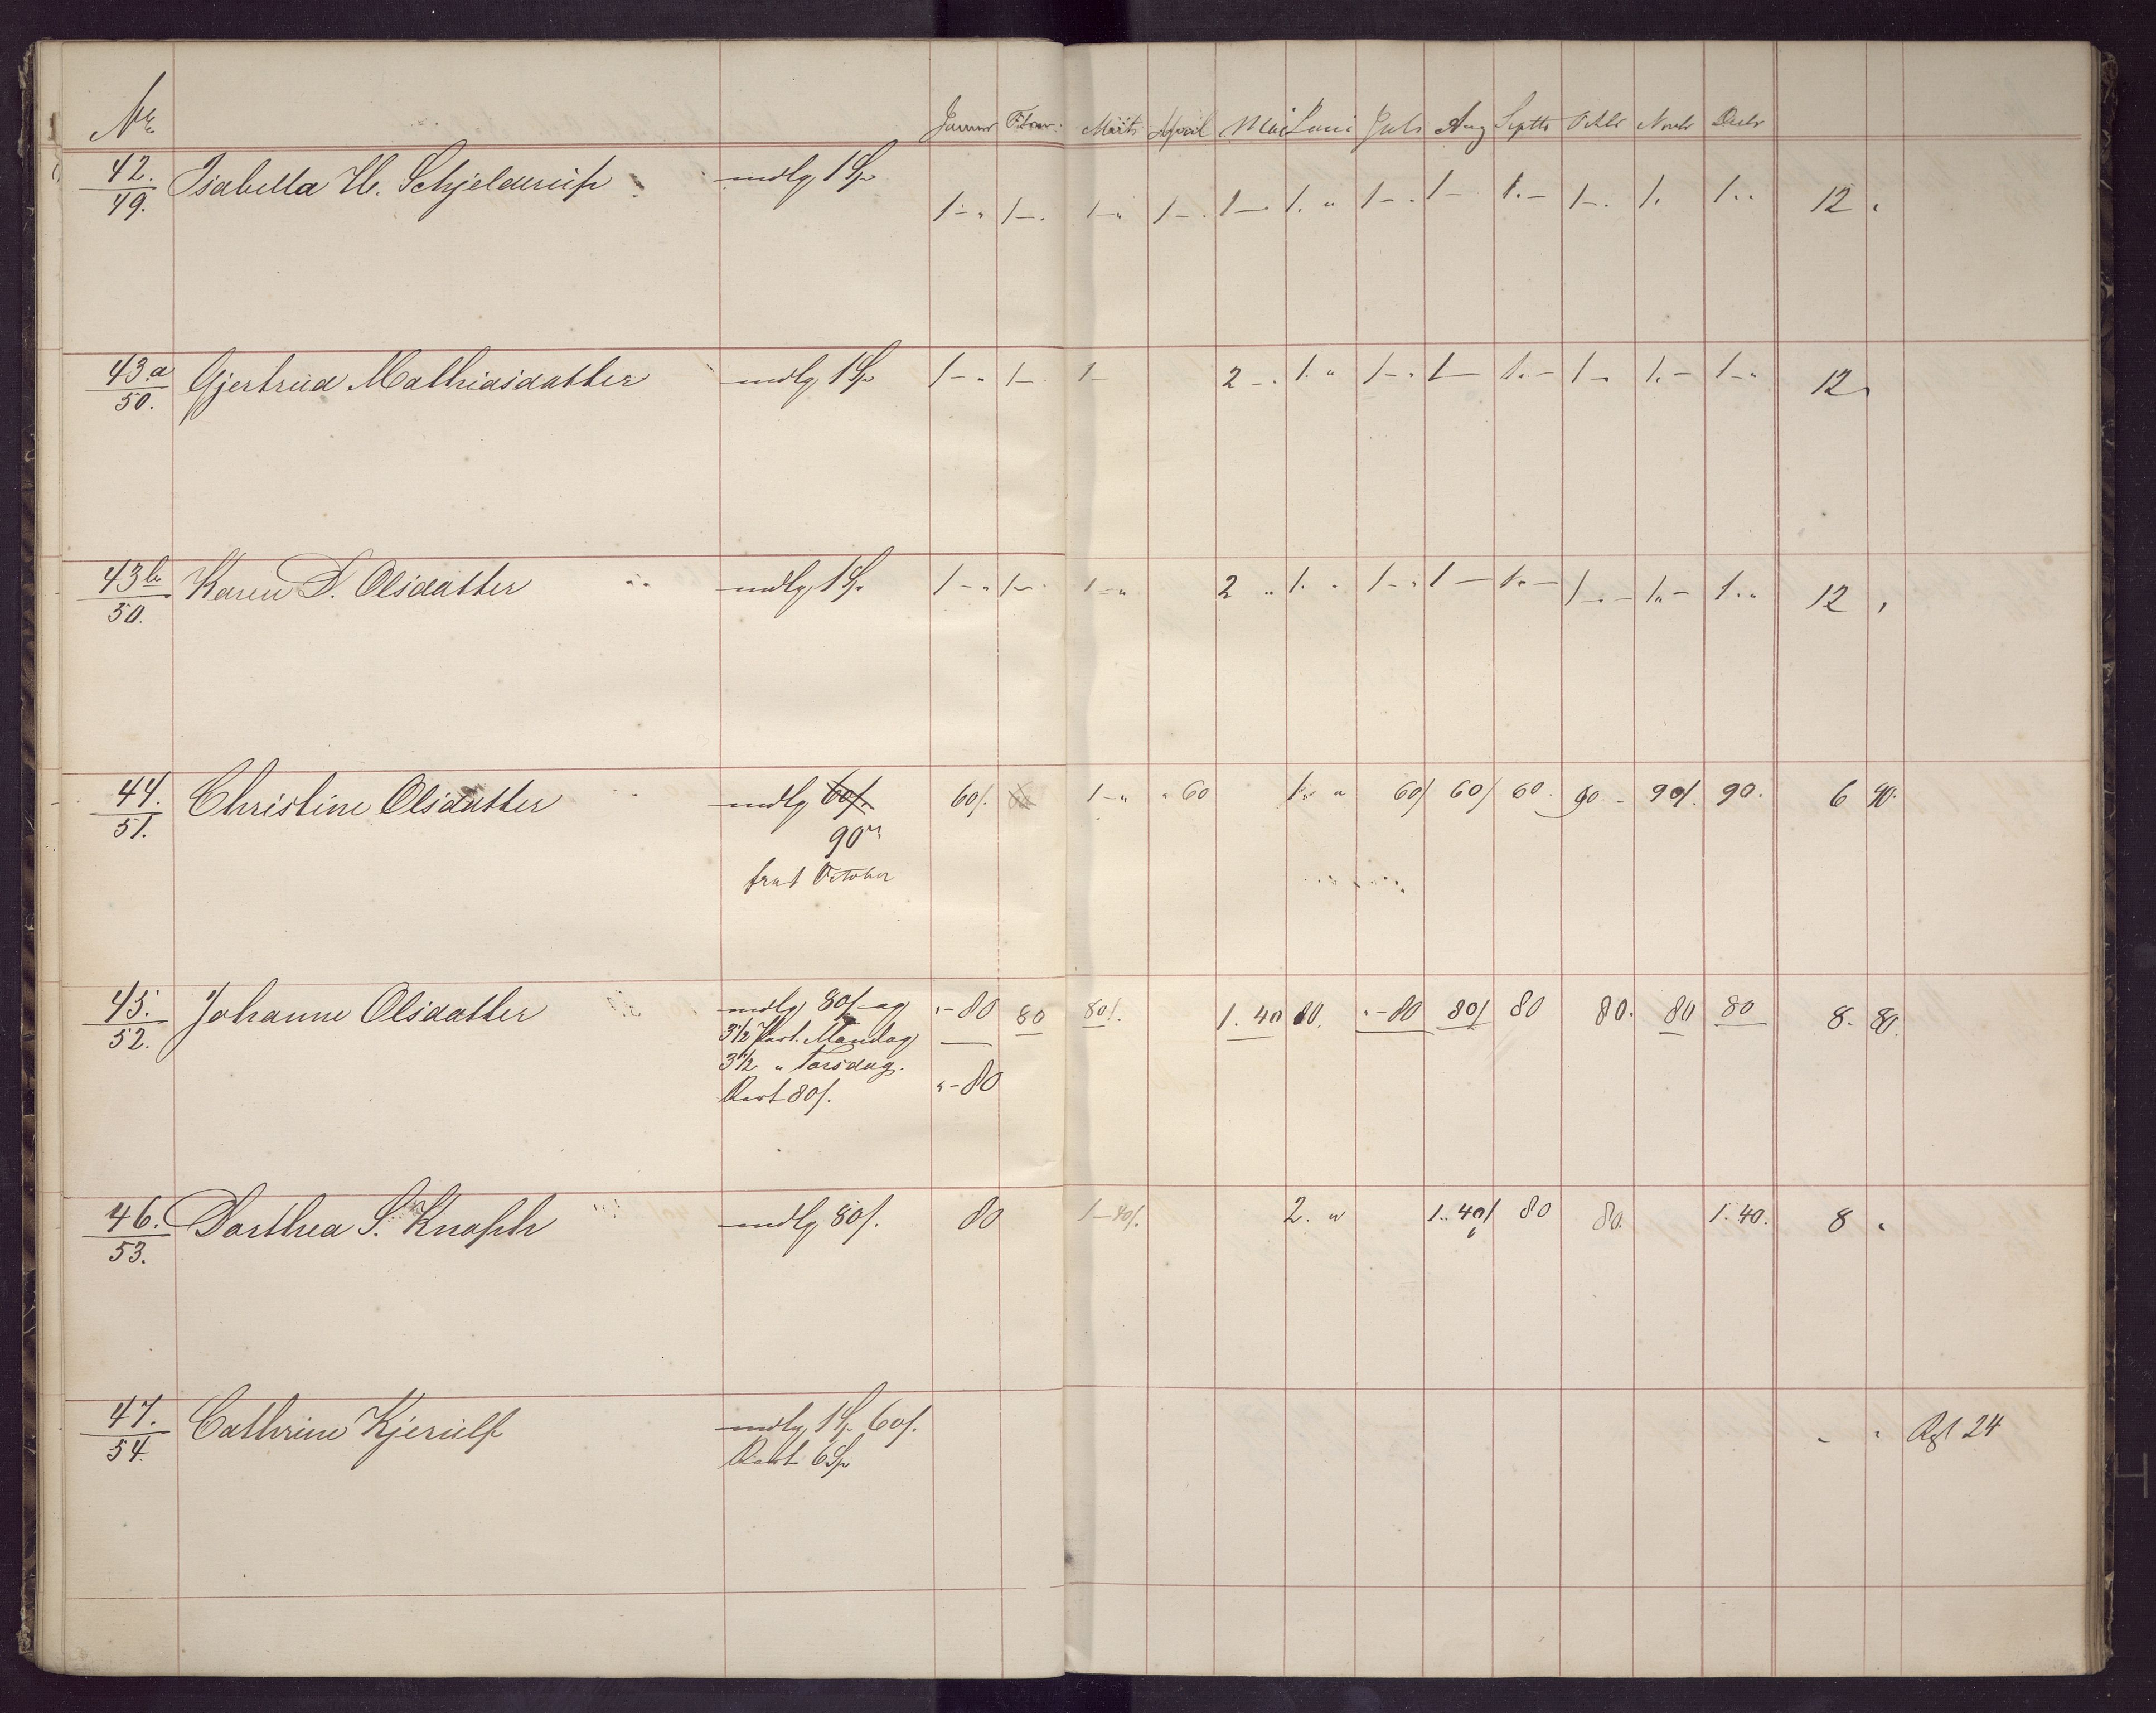 No. Januar Februar Marts April Mai Juni Juli Aug Septbr Octbr Novbr Decbr
42. Isabella H. Schjelderup mdlg 1 Sp
49. 1 – „ 1 – . 1 – „ 1 – . 1 – . 1. „ 1 – . 1 – 1. – 1 – . 1. 1. „ 12 „
43.a Gjertrud Mathiasdatter mdlg 1 Sp 1 – „ 1 – . 1 – 2 – . 1. „ 1 – „ 1 – 1. – 1 – . 1. – 1 – „ 12 „
50.
43b Karen D. Olsdatter mdlg 1 Sp 1 – „ 1 – . 1 – „ 2 „ 1. „ 1 – „ 1 – 1. – 1 – . – 1 „ – 1. „ 12 „
50.
44. Christine Olsdatter mdlg 60/. 60/. 1 – „ „ 60 1. „ 60/ 60/ 60. 90 – 90/. 90. 6 90.
51. 90
fra 1 October
45. Johanne Olsdatter mdlg 80/. og „ – 80 80 80/. 1. 40 80. „ – 80 80/ 80 80. 80 80 8. 80.
52. 3 1/2 Port. Mandag
3 1/2 „ Torsdag.
Rest 80/. „ – 80
46. Dorthea S. Knoph mdlg 80/. 80 1 – 40/. 2. „ 1. 40/ 80 80. 1. 40. 8 „
53.
47. Cathrine Kjerulf mdlg 1 Sp 60/. „ „ 24
54. Rest 6 Sp